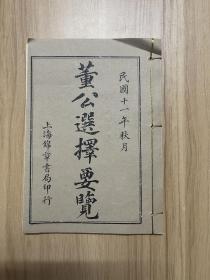 民國十一年秋月
董公選擇要覽
上海錦章書局印行